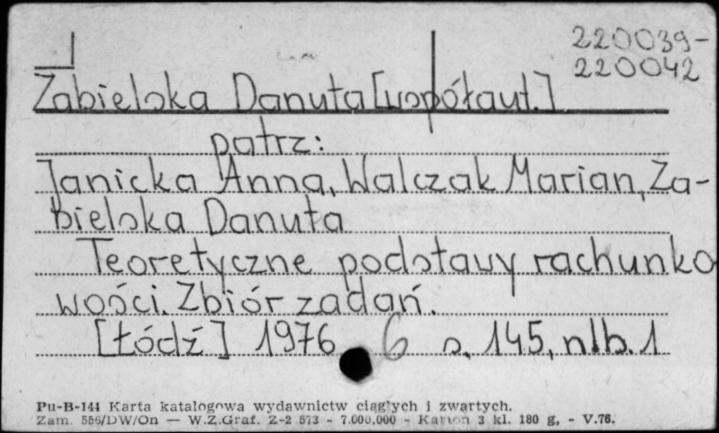 220039-
220042
Zabielska Danuta [współaut.]
patrz:
Janicka Anna, Walczak Marian, Za-
bielska Danuta
Teoretyczne podstawy rachunko
wości. Zbiór zadań.
[Łódź] 1976 6 s. 145, nlb. 1
Pu-B-144 Karta katalogowa wydawnictw ciągłych i zwartych.
Zam. 556/DW/On — W.Z.Graf. Z-2 573 - 7.000.000 - Karton 3 kl. 180 g, - V.76.